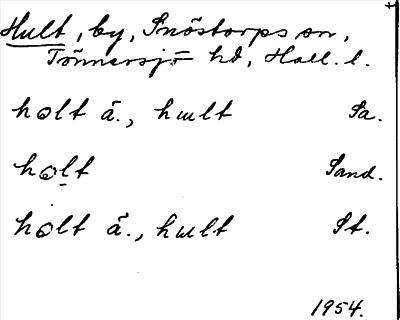 Hult, by, Snöstorps sn,
Tönnersjö hd, Hall. l.
holt ä., hult Sa.
họlt Sand.
holt ä., hult St.
1954.